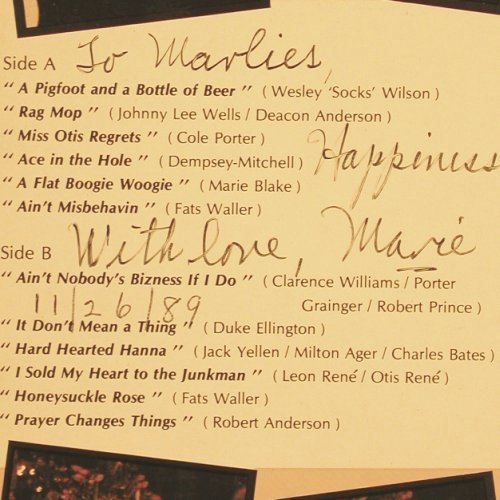 Side A To Marlies,
“ A Pigfoot and a Bottle of Beer ” ( Wesley 'Socks' Wilson )
“ Rag Mop ” ( Johnny Lee Wells / Deacon Anderson )
“ Miss Otis Regrets ” ( Cole Porter )
“ Ace in the Hole ” ( Dempsey-Mitchell ) Happiness
“ A Flat Boogie Woogie ” ( Marie Blake )
“ Ain't Misbehavin ” ( Fats Waller )
Side B With love, Marie
“ Ain't Nobody's Bizness If I Do ” ( Clarence Williams / Porter
11/26/89 Grainger / Robert Prince )
“ It Don't Mean a Thing ” ( Duke Ellington )
“ Hard Hearted Hanna ” ( Jack Yellen / Milton Ager / Charles Bates )
“ I Sold My Heart to the Junkman ” ( Leon René / Otis René )
“ Honeysuckle Rose ” ( Fats Waller )
“ Prayer Changes Things ” ( Robert Anderson )